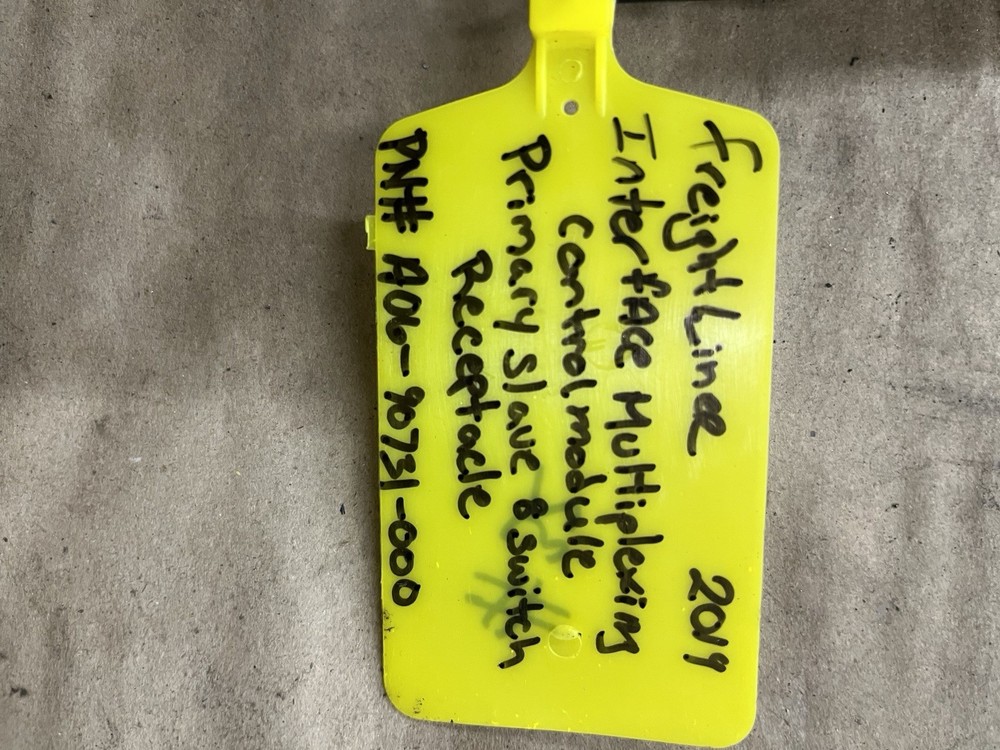 FreightLiner 2019
InterfAce Multiplexing
Control module
Primary Slave 8 switch
Receptacle
PN# A06-90731-000